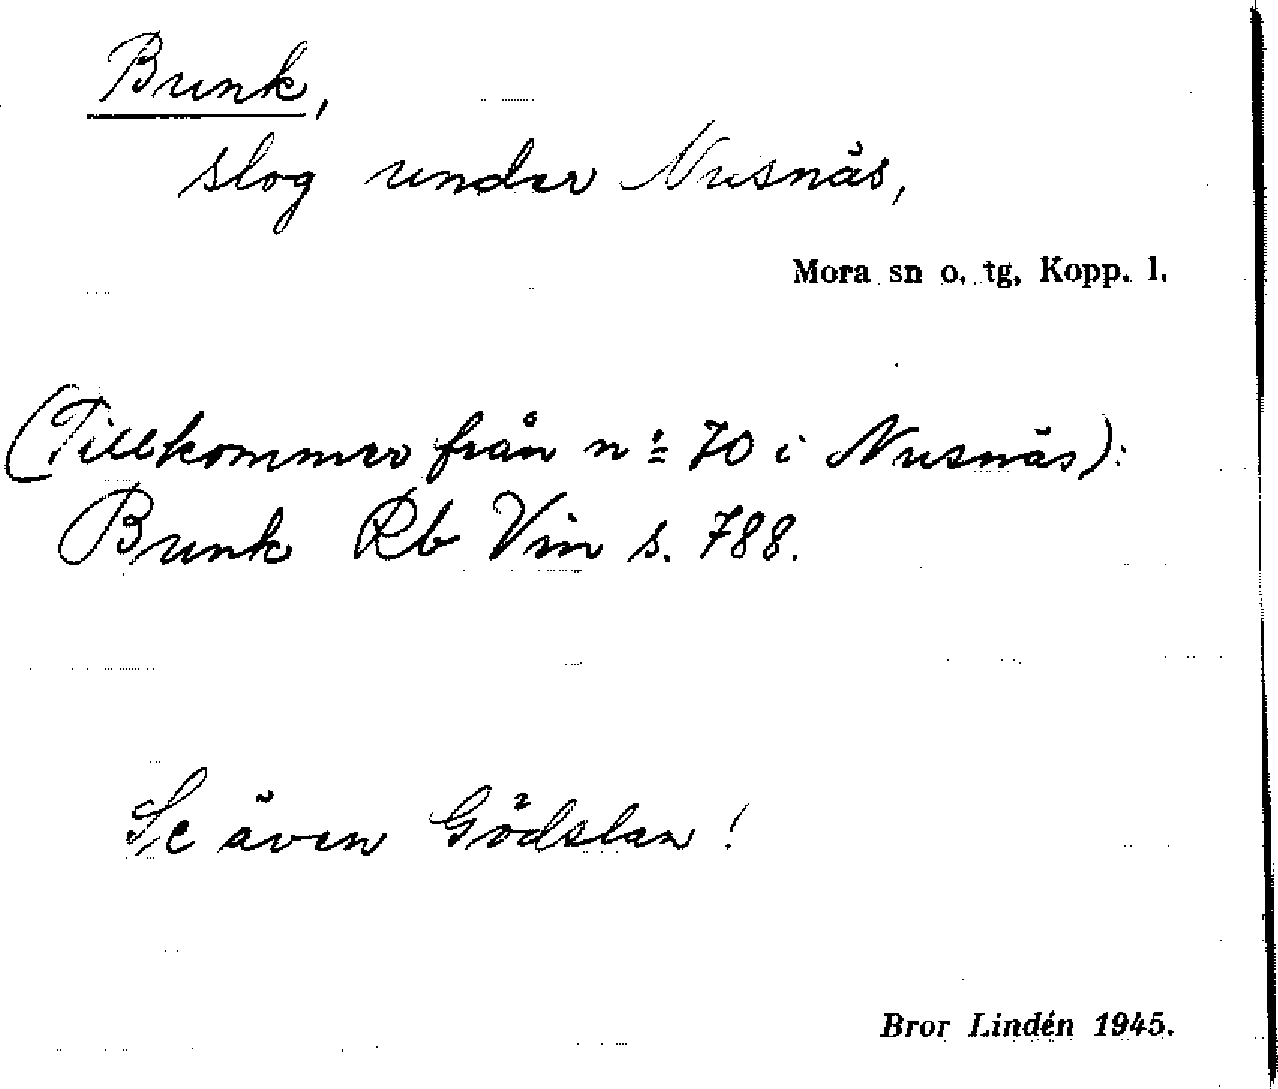 Bunk,
slog under Nusnäs,
Mora sn o. tg, Kopp. l.
(Tillkommer från nº 70 i Nusnäs):
Bunk Rb Vin s. 788.
Se även Gödslan!
Bror Lindén 1945.